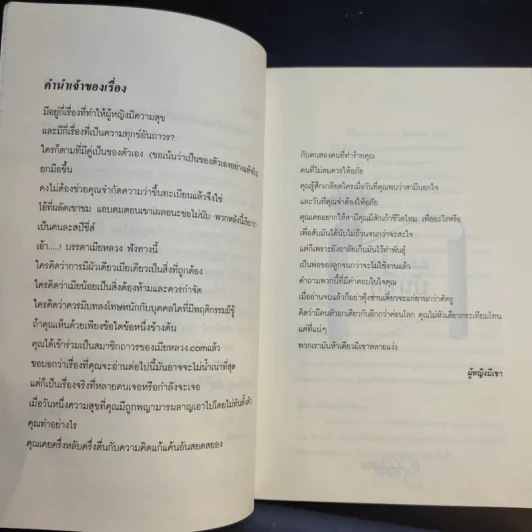 คำนำเจ้าของเรื่อง
มีอยู่กี่เรื่องที่ทำให้ผู้หญิงมีความสุข
และมีกี่เรื่องที่เป็นความทุกข์อันถาวร?
ใครก็ตามที่มีคู่เป็นของตัวเอง (ขอเน้นว่าเป็นของตัวเองอย่างแท้จริง)
ยกมือขึ้น
คงไม่ต้องช่วยคุณจำกัดความว่าขึ้นทะเบียนแล้วจึงใช่
ไอ้ที่ผลัดเขาชม แอบคมตอนเขาเผลอนะขอไม่นับ พวกหลังนี้
เป็นคนละสปีชี่ส์
เอ้า....! บรรดาเมียหลวง ฟังทางนี้
ใครคิดว่าการมีผัวเดียวเมียเดียวเป็นสิ่งที่ถูกต้อง
ใครคิดว่าเมียน้อยเป็นสิ่งต้องห้ามและควรกำจัด
ใครคิดว่าควรมีบทลงโทษหนักกับบุคคลใดที่มีพฤติกรรมมีชู้
ถ้าคุณเห็นด้วยเพียงข้อใดข้อหนึ่งข้างต้น
คุณได้เข้าร่วมเป็นสมาชิกถาวรของเมียหลวง.comแล้ว
ขอบอกว่าเรื่องที่คุณจะอ่านต่อไปนี้มันอาจจะไม่น้ำเน่าที่สุด
แต่ก็เป็นเรื่องจริงที่หลายคนเจอหรือกำลังจะเจอ
เมื่อวันหนึ่งความสุขที่คุณมีถูกพญามารผลาญเอาไปโดยไม่ทันตั้งตัว
คุณทำอย่างไร
คุณเคยครึ่งหลับครึ่งตื่นกับความคิดแก้แค้นอันสยดสยอง
กับคนสองคนที่ทำร้ายคุณ
คนที่ไม่สมควรให้อภัย
คุณรู้สึกเกลียดใครเมื่อวันที่คุณพบว่าสามีนอกใจ
และวันที่คุณจำต้องให้อภัย
คุณเคยอยากให้สามีคุณมีสักเก้าชีวิตไหม เพื่ออะไรหรือ
เพื่อสับมันได้นับไม่ถ้วนจนกว่าจะสะใจ
แต่ก็เพราะยังอาลัยเก็บมันไว้ทำพันธุ์
เป็นพ่อของลูกจนกว่าจะไม่ใช้งานแล้ว
คำถามพวกนี้ที่มีคำตอบในใจคุณ
เมื่ออ่านจบแล้วก็อย่าฟุ้งซ่านเดี๋ยวจะแก่ยานกว่าศัตรู
คิดว่ามีคนหัวอกเดียวกันอีกกว่าค่อนโลก คุณไม่หัวเดียวกระเทียมโทน
แต่ที่แน่ๆ
พวกเรามันหัวเดียวมีเขาหลายแง่ง
ผู้หญิงมีเขา